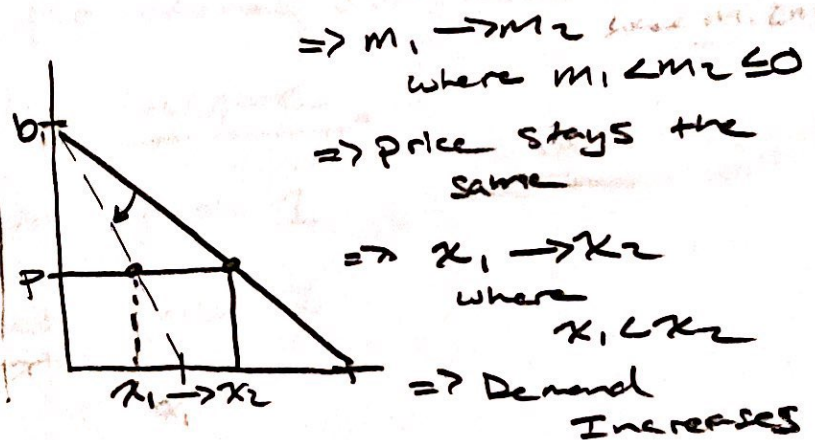 => m₁ → m₂
where m₁ < m₂ ≤ 0
b₁
=> price stays the
same
=> x₁ → x₂
where
x₁ < x₂
P
x₁ → x₂
=> Demand
Increases